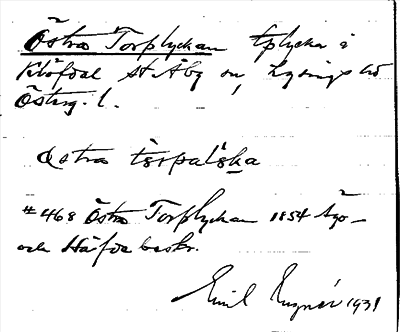 Östra Torplyckan tplycka i
Klåfdal St. Åby sn, Lysings hd
Österg. l.
östra tórpalı̇̀ska
#468 Östra Torplyckan 1854 Ägo-
och Häfda beskr.
Emil 1931